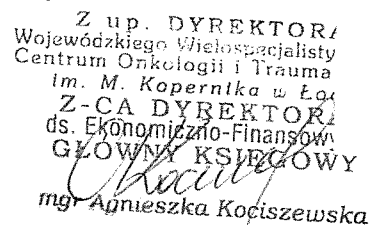 Z up. DYREKTORA
Wojewódzkiego Wielospecjalisty
Centrum Onkologii i Trauma
im. M. Kopernika w Ło
Z-CA DYREKTORA
ds. Ekonomiczno-Finansow
GŁÓWNY KSIĘGOWY
mgr Agnieszka Kociszewska